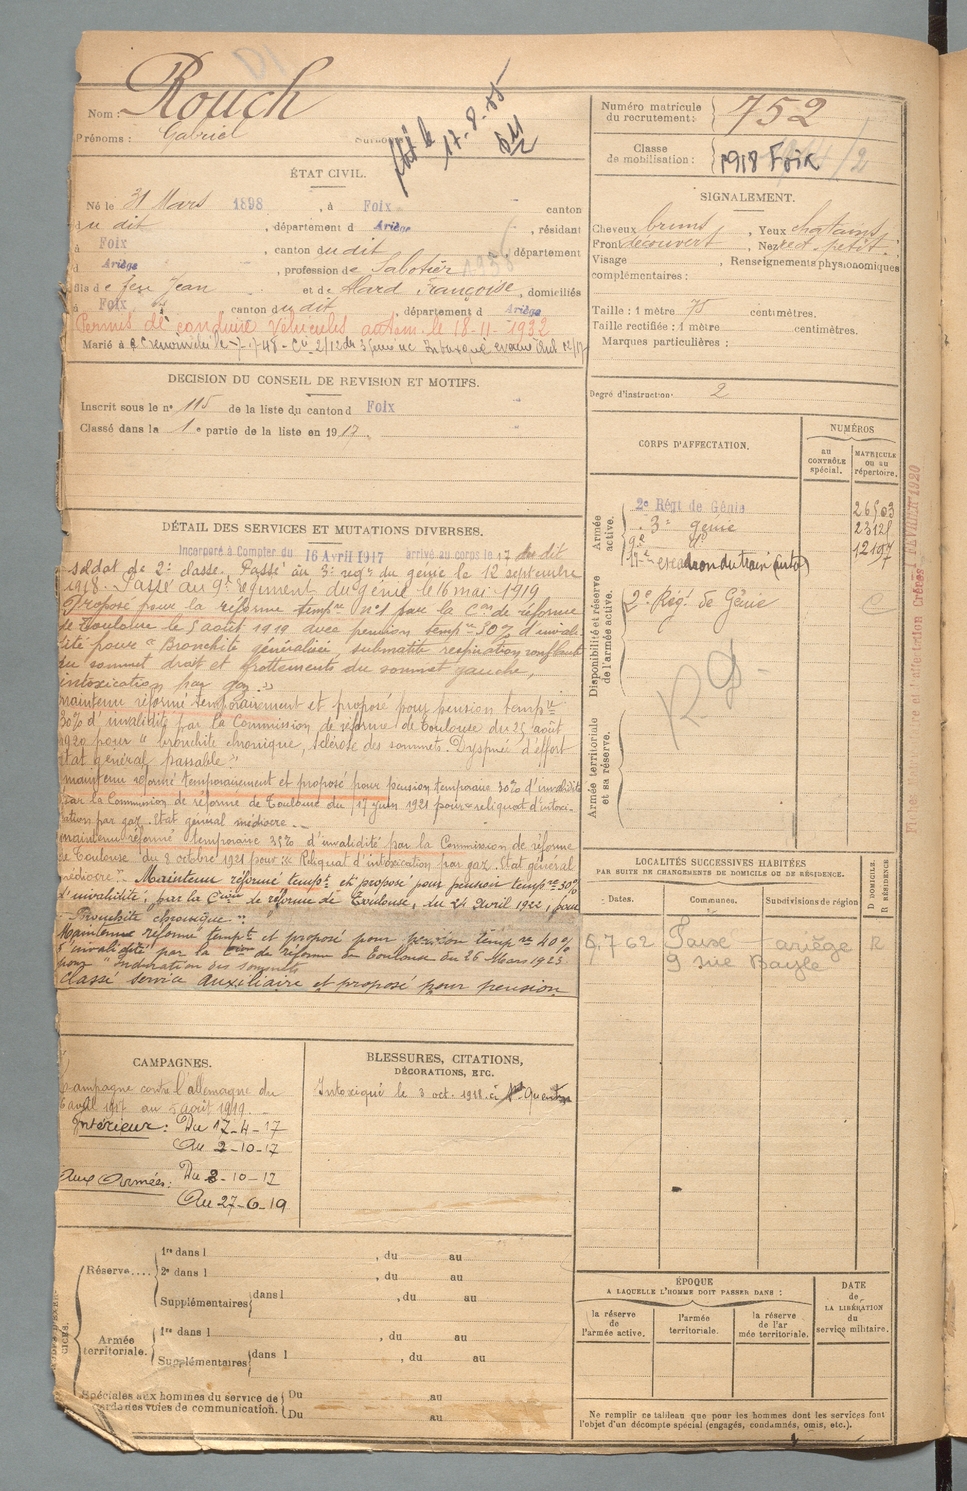 Nom : Rouch
Prénoms : Gabriel
17-8-85
Numéro matricule du recrutement : 752
Classe de mobilisation : 1918 Foix
ÉTAT CIVIL.
Né le 31 Mars 1898, à Foix canton
du dit, département d Ariège, résidant
à Foix, canton du dit, département
d Ariège, profession de Sabotier
fils de feu Jean et de, domiciliés
à Foix, canton du dit, département d Ariège
Permis de conduire Véhicules autom. le 18-11-1932
Marié à
SIGNALEMENT.
Cheveux bruns, Yeux chatains
Front découvert, Nez rect. petit.
Visage, Renseignements physionomiques
complémentaires :
Taille : 1 mètre 75 centimètres.
Taille rectifiée : 1 mètre centimètres.
Marques particulières :
Degré d'instruction : 2
DÉCISION DU CONSEIL DE REVISION ET MOTIFS.
Inscrit sous le n° 115 de la liste du canton d Foix
Classé dans la 1e partie de la liste en 1917.
CORPS D'AFFECTATION.
NUMÉROS
au CONTRÔLE spécial.
MATRICULE ou au répertoire.
Armée active.
2e Régt de Génie 26503
3e génie
9e do
escadron du train (auto)
Disponibilité et réserve de l'armée active.
2e Rég. de Génie C
Armée territoriale et sa réserve.
DÉTAIL DES SERVICES ET MUTATIONS DIVERSES.
Incorporé à Compter du 16 Avril 1917 arrivé au corps le 17 du dit
soldat de 2e classe. Passé au 3e regt du génie le 12 septembre
1918. Passé au 9e régiment du génie le 16 mai 1919
Proposé pour la réforme tempre n°1 par la Con de réforme
de Toulouse le 5 août 1919 avec pension tempre 30% d'invali-
dité pour "Bronchite généralisée submatité respiration ronflante
au sommet droit et frottements du sommet gauche,
intoxication par gaz."
maintenu réformé temporairement et proposé pour pension tempre
30% d'invalidité par la Commission de réforme de Toulouse du 25 août
1920 pour "bronchite chronique, sclérose des sommets. Dyspnée d'effort
état général passable."
maintenu réformé temporairement et proposé pour pension temporaire 30% d'invalidité
par la Commission de réforme de Toulouse du 17 Juin 1921 pour "reliquat d'intoxi-
cation par gaz. Etat général médiocre.
maintenu réformé temporaire 35% d'invalidité par la Commission de réforme
de Toulouse du 8 octobre 1921 pour "Reliquat d'intoxication par gaz. Etat général
médiocre". Maintenu réformé tempt et proposé pour pension tempre 30%
d'invalidité, par la Con de réforme de Toulouse, du 24 Avril 1922, pour
"Bronchite chronique".
Maintenu réformé tempt et proposé pour pension tempre 40%
d'invalidité par la Con de réforme de Toulouse du 26 Mars 1923
pour "induration des sommets"
Classé service auxiliaire et proposé pour pension
LOCALITÉS SUCCESSIVES HABITÉES
PAR SUITE DE CHANGEMENTS DE DOMICILE OU DE RÉSIDENCE.
Dates.
Communes.
Subdivisions de région
D DOMICILE.
R RÉSIDENCE
762 ariège R
9 rue Bayle
CAMPAGNES.
Campagne contre l'allemagne du
avril 1917 au 5 août 1919.
Intérieur : Du 17-4-17
Au 2-10-17
Aux Armées : Du 3-10-17
Au 27-6-19
BLESSURES, CITATIONS,
DÉCORATIONS, ETC.
Intoxiqué le 3 oct. 1918 à St Quentin
Réserve....
1re dans l, du au
2e dans l, du au
Supplémentaires dans l, du au
Armée territoriale.
1re dans l, du au
Supplémentaires dans l, du au
Spéciales aux hommes du service de
garde des voies de communication.
Du au
Du au
ÉPOQUE
A LAQUELLE L'HOMME DOIT PASSER DANS :
la réserve de l'armée active.
l'armée territoriale.
la réserve de l'armée territoriale.
DATE de LA LIBÉRATION du service militaire.
Ne remplir ce tableau que pour les hommes dont les services font
l'objet d'un décompte spécial (engagés, condamnés, omis, etc.).